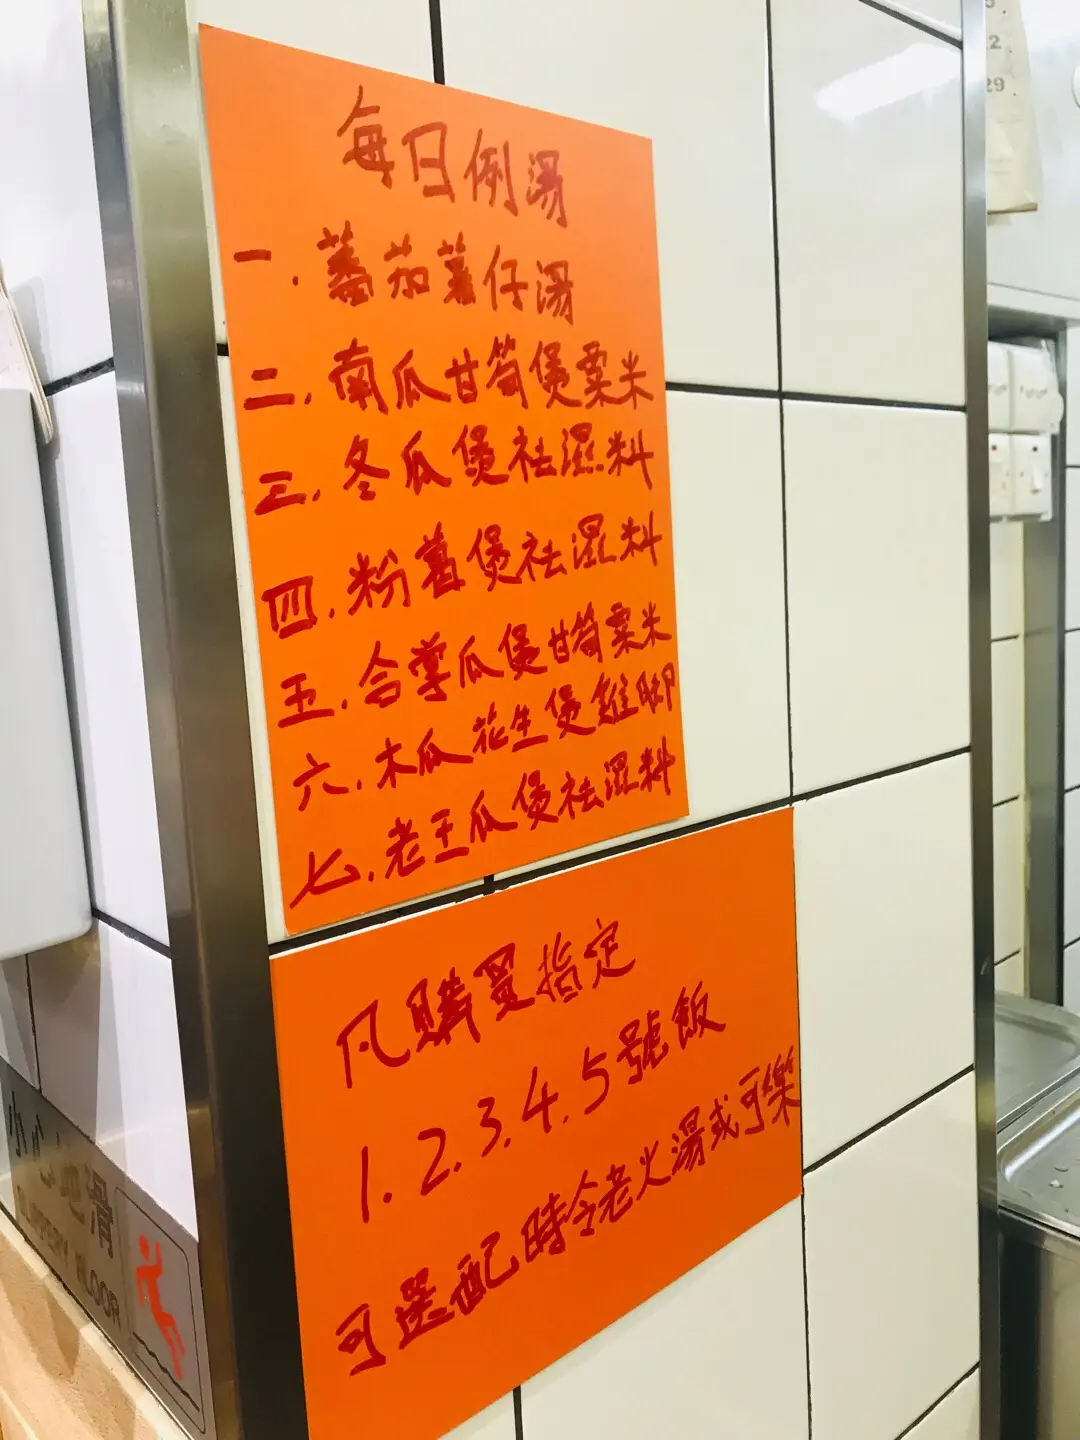 每日例湯
一.蕃茄薯仔湯
二.南瓜甘筍煲粟米
三.冬瓜煲祛濕料
四.粉葛煲祛濕料
五.合掌瓜煲甘筍粟米
六.木瓜花生煲雞腳
七.老王瓜煲祛濕料
凡購買指定
1.2.3.4.5號飯
可選配時令老火湯或可樂
小心地滑
SLIPPERY FLOOR
2
29